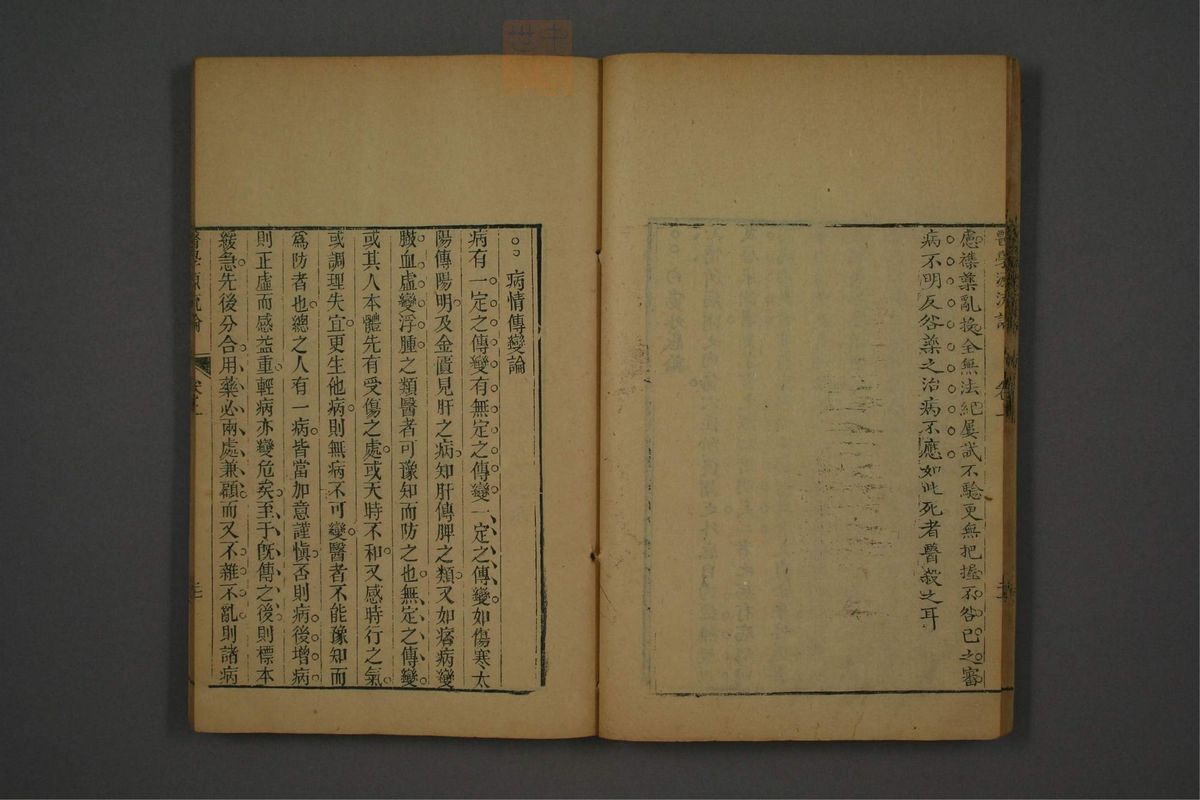 醫學源流論 卷上
慮襍藥亂投全無法紀屢試不驗更無把握不咎已之審
病不明反咎藥之治病不應如此死者醫殺之耳
病情傳變論
病有一定之傳變有無定之傳變一定之傳變如傷寒太
陽傳陽明及金匱見肝之病知肝傳脾之類又如痞病變
臌血虛變浮腫之類醫者可豫知而防之也無定之傳變
或其人本體先有受傷之處或天時不和又感時行之氣
或調理失宜更生他病則無病不可變醫者不能豫知而
爲防者也總之人有一病皆當加意謹愼否則病後增病
則正虛而感益重輕病亦變危矣至于旣傳之後則標本
緩急先後分合用藥必兩處兼顧而又不雜不亂則諸病
醫學源流論 卷上